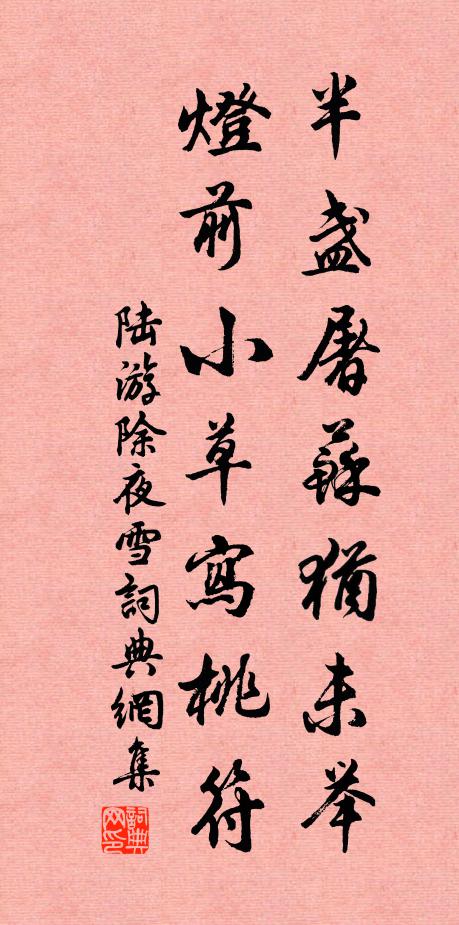 半盏屠蘇猶未举
燈前小草寫桃符
陆游除夜雪詞典網集
詞典网印